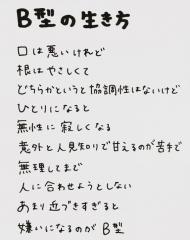 B型の生き方
口は悪いけれど
根はやさしくて
どちらかというと協調性はないけど
ひとりになると
無性に寂しくなる
意外と人見知りで甘えるのが苦手で
無理してまで
人に合わせようとしない
あまり近づきすぎると
嫌いになるのが B型